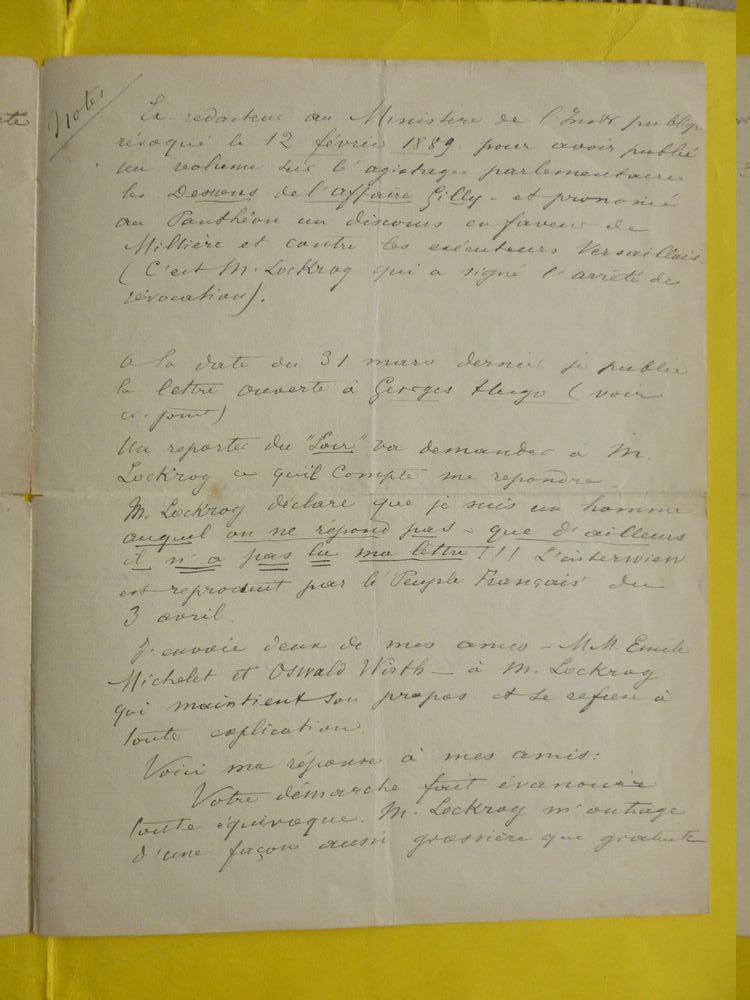 Notes
Ex rédacteur au Ministère de l'Inst publiq
révoqué le 12 février 1889. pour avoir publié
un volume sur l'agiotage parlementaire
les Dessous de l'affaire Gilly - et prononcé
au Panthéon un discours en faveur de
Millière et contre les exécuteurs Versaillais.
(C'est M. Lockroy qui a signé l'arrêté de
révocation).
A la date du 31 mars dernier je publie
la lettre ouverte à Georges Hugo (voir
ci-joint)
Un reporter du "Soir" va demander à M.
Lockroy ce qu'il compte me répondre.
M. Lockroy déclare que je suis un homme
auquel on ne répond pas - que d'ailleurs
il n'a pas lu ma lettre!!! L'interwiew
est reproduit par le Peuple Français du
3 avril.
J'envoie deux de mes amis - M.M. Emile
Michelet et Oswald Wirth - à M. Lockroy
qui maintient son propos et se refuse à
toute explication
Voici ma réponse à mes amis:
Votre démarche fait évanouir
toute équivoque. M. Lockroy m'outrage
d'une façon aussi grossière que gratuite